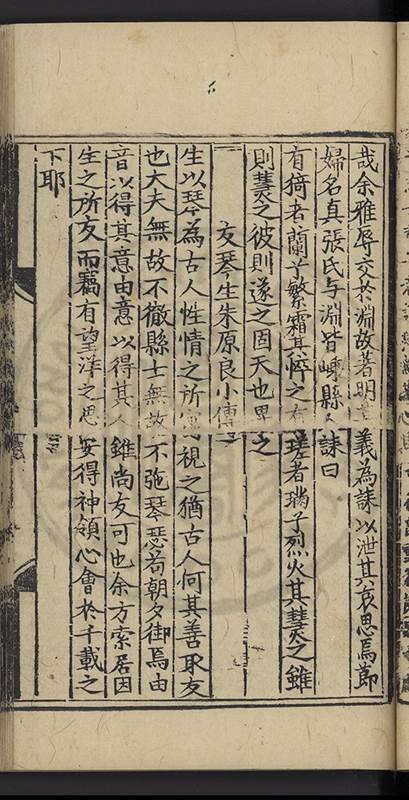 哉余雅辱交於淵故著明義為誄以泄其哀思焉節
婦名真張氏与淵皆嵊縣人誄曰
有猗者蘭兮繁霜其悴之有瑳者瑀兮烈火其爇之雖
則爇之彼則遂之因天也畀之
友琴生朱原良小傳
生以琴為古人性情之所寓視之猶古人何其善取友
也大夫無故不徹縣士無故不弛琴瑟者朝夕御焉由
音以得其意由意以得其人雖尚友可也余方索居因
生之所友而竊有望洋之思安得神領心會於千載之
下耶